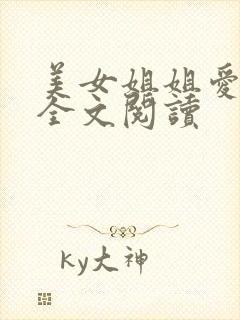 美女姐姐愛
全文閱讀
ky大神